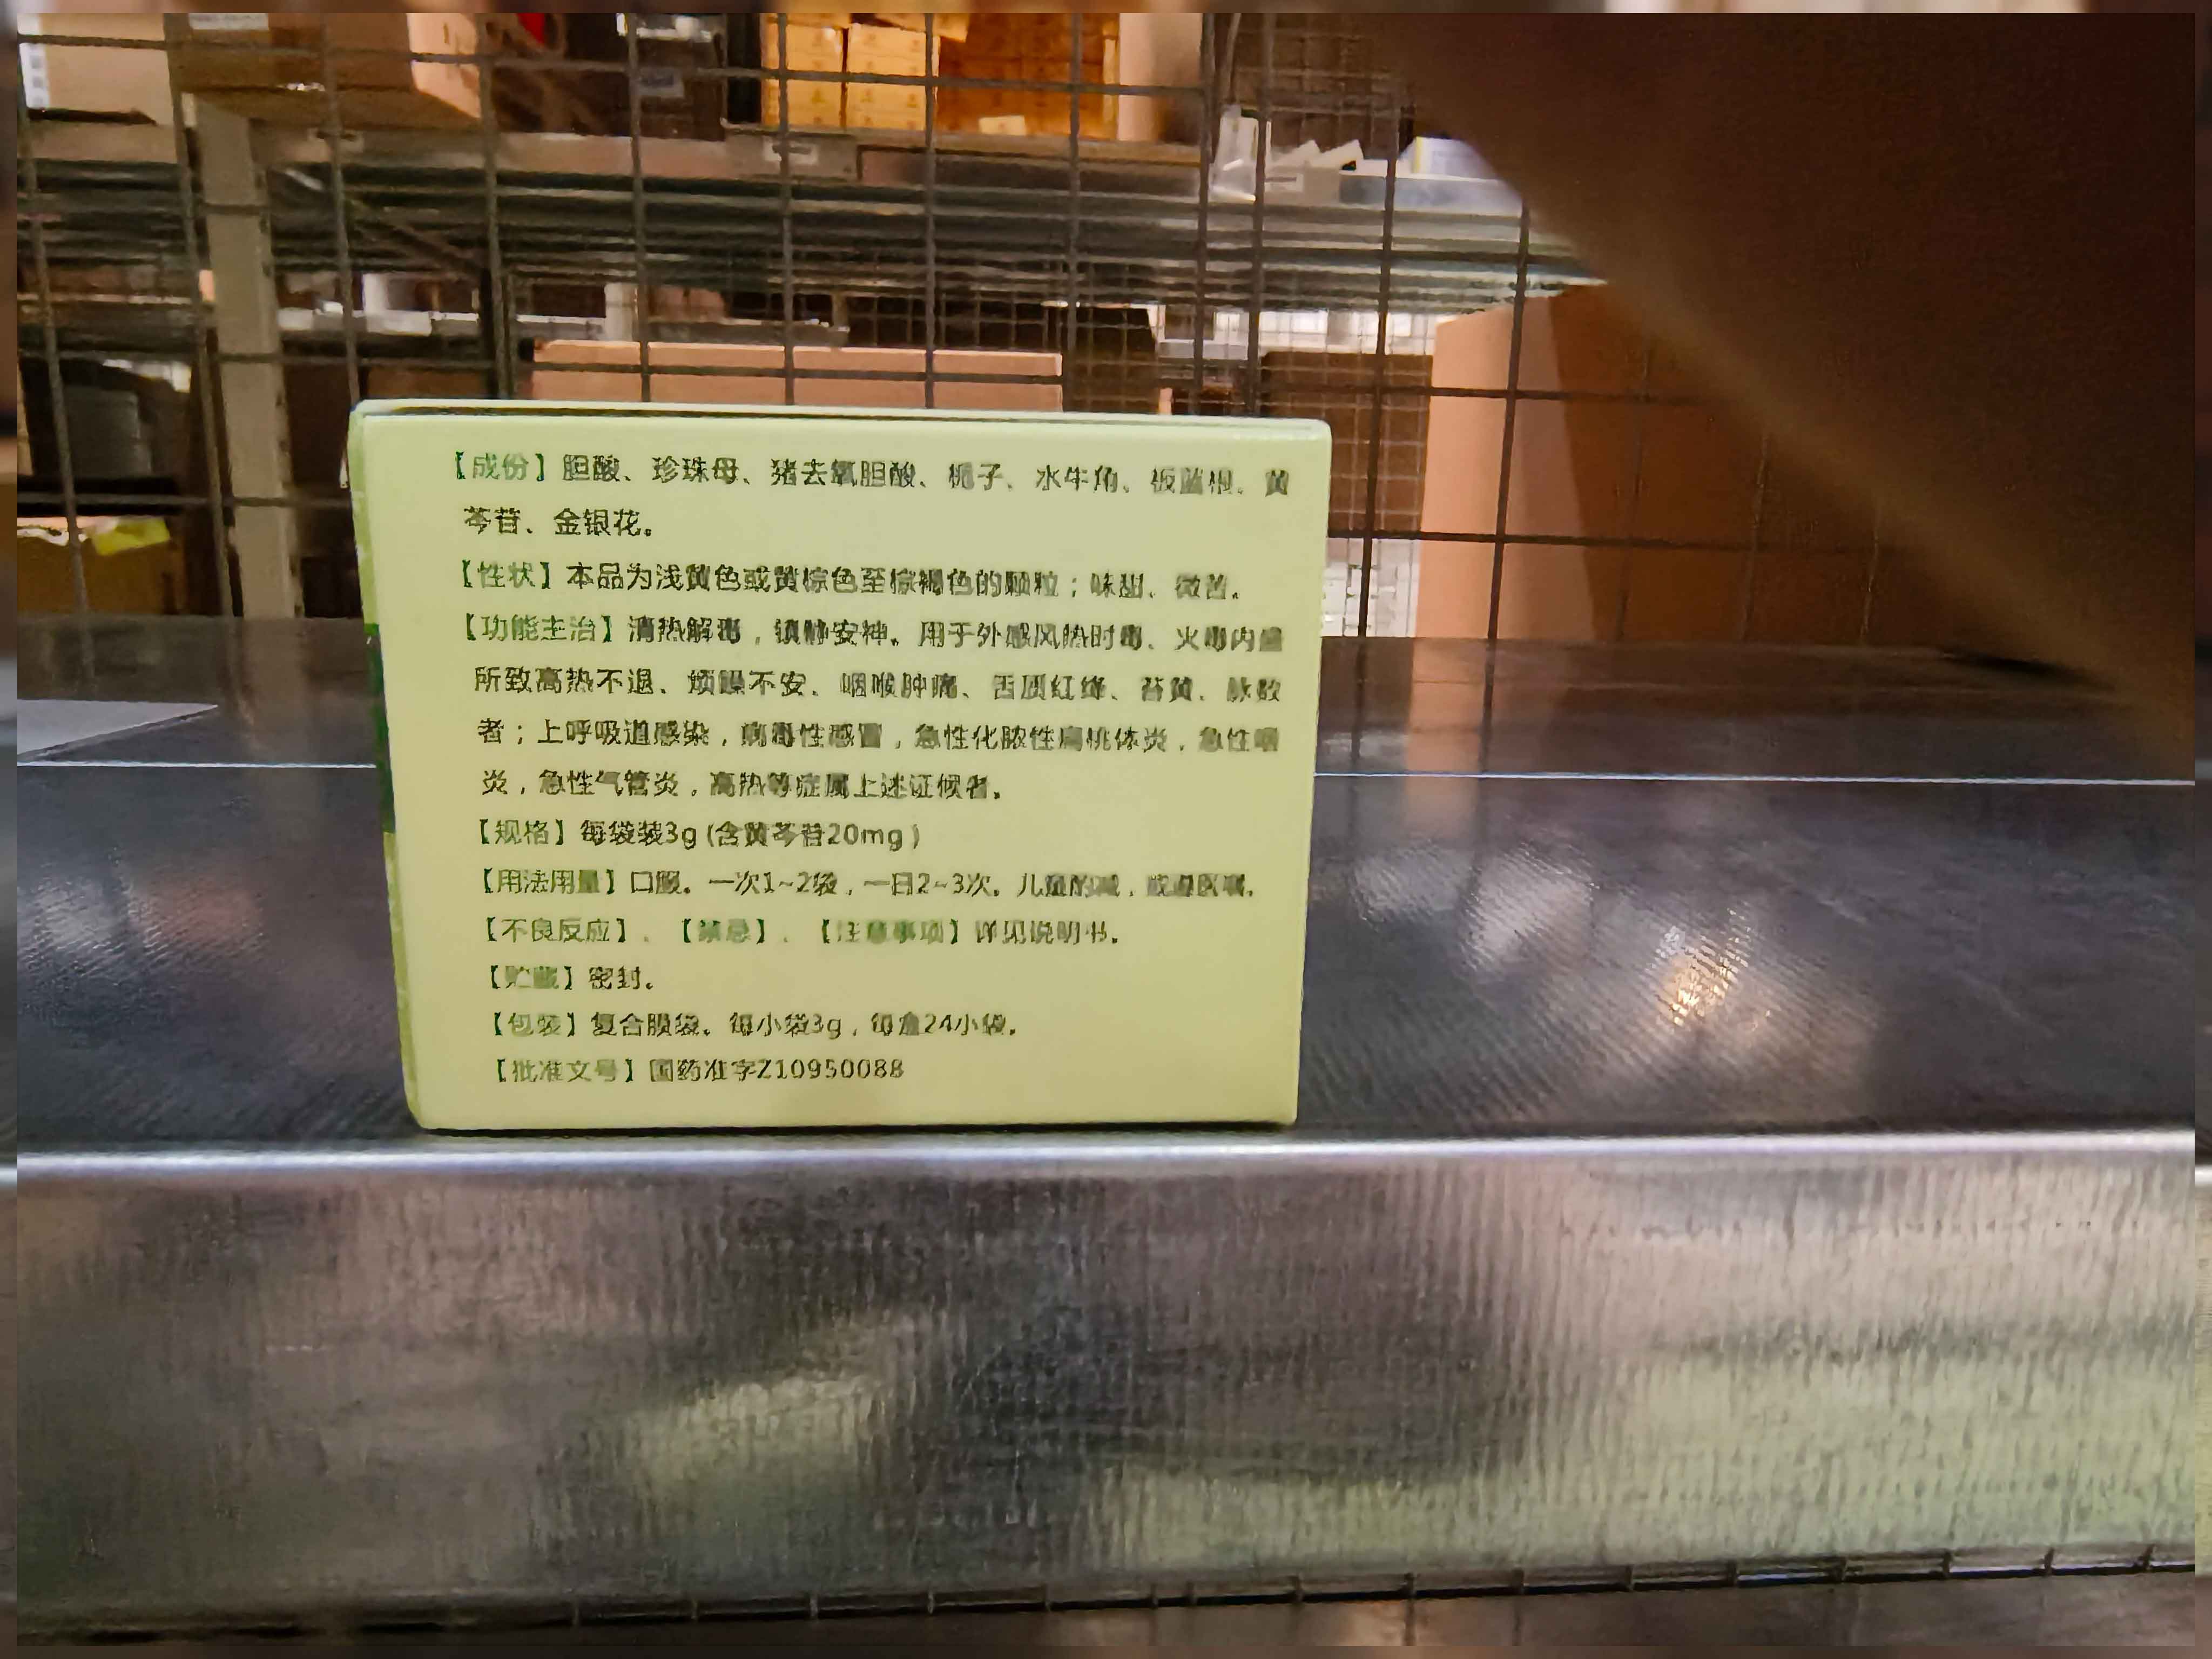 【成份】胆酸、珍珠母、猪去氧胆酸、栀子、水牛角、板蓝根、黄
芩苷、金银花。
【性状】本品为浅黄色或黄棕色至棕褐色的颗粒；味甜、微苦。
【功能主治】清热解毒，镇静安神。用于外感风热时毒、火毒内盛
所致高热不退、烦躁不安、咽喉肿痛、舌质红绛、苔黄、脉数
者；上呼吸道感染，病毒性感冒，急性化脓性扁桃体炎，急性咽
炎，急性气管炎，高热等症属上述证候者。
【规格】每袋装3g (含黄芩苷20mg )
【用法用量】口服。一次1~2袋，一日2~3次。儿童酌减，或遵医嘱。
【不良反应】、【禁忌】、【注意事项】详见说明书。
【贮藏】密封。
【包装】复合膜袋。每小袋3g，每盒24小袋。
【批准文号】国药准字Z10950088